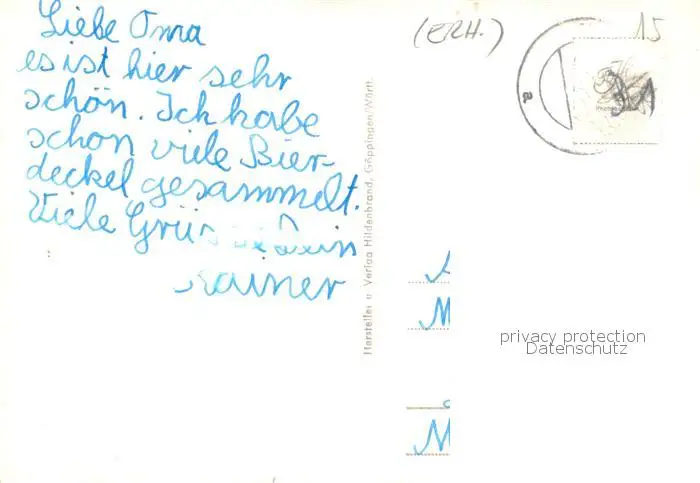 Liebe Oma
es ist hier sehr
schön. Ich habe
schon viele Bier-
deckel gesammelt.
Viele Grüsse Dein
Rainer
Hersteller u. Verlag Hildenbrand, Göppingen/Württ.
(ERH.)
15
a
M
M
privacy protection
Datenschutz